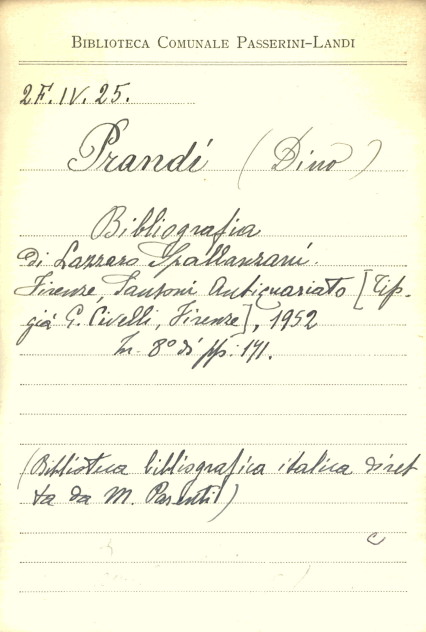 BIBLIOTECA COMUNALE PASSERINI-LANDI
2F.IV.25.
Prandi (Dino)
Bibliografia
di Lazzaro Spallanzani.
Firenze, Sansoni Antiquariato [Tip.
già G. Civelli, Firenze], 1952
In 8° di pp. 171.
(Biblioteca bibliografica italica diret
ta da M. Parenti)
c